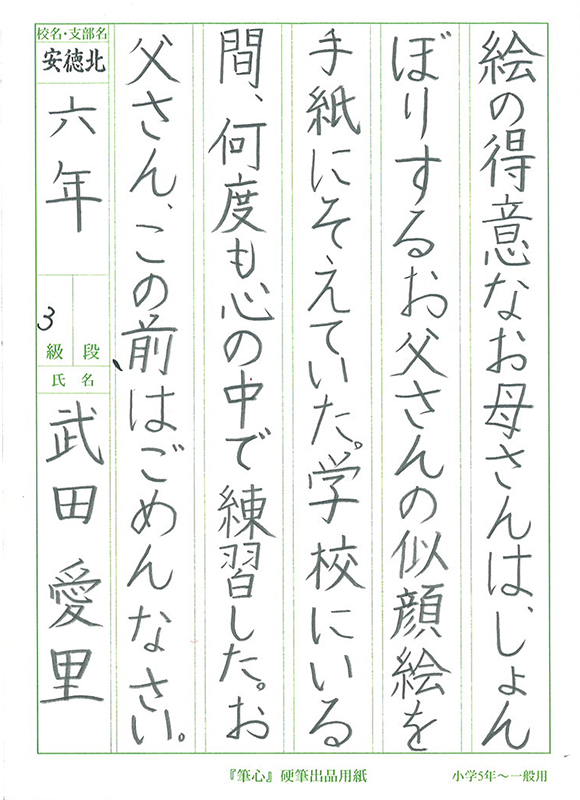 絵の得意なお母さんは、しょん
ぼりするお父さんの似顔絵を
手紙にそえていた。学校にいる
間、何度も心の中で練習した。お
父さん、この前はごめんなさい。
校名・支部名
安徳北
六年
3
級 段
氏 名
武田 愛里
『筆心』硬筆出品用紙
小学5年～一般用